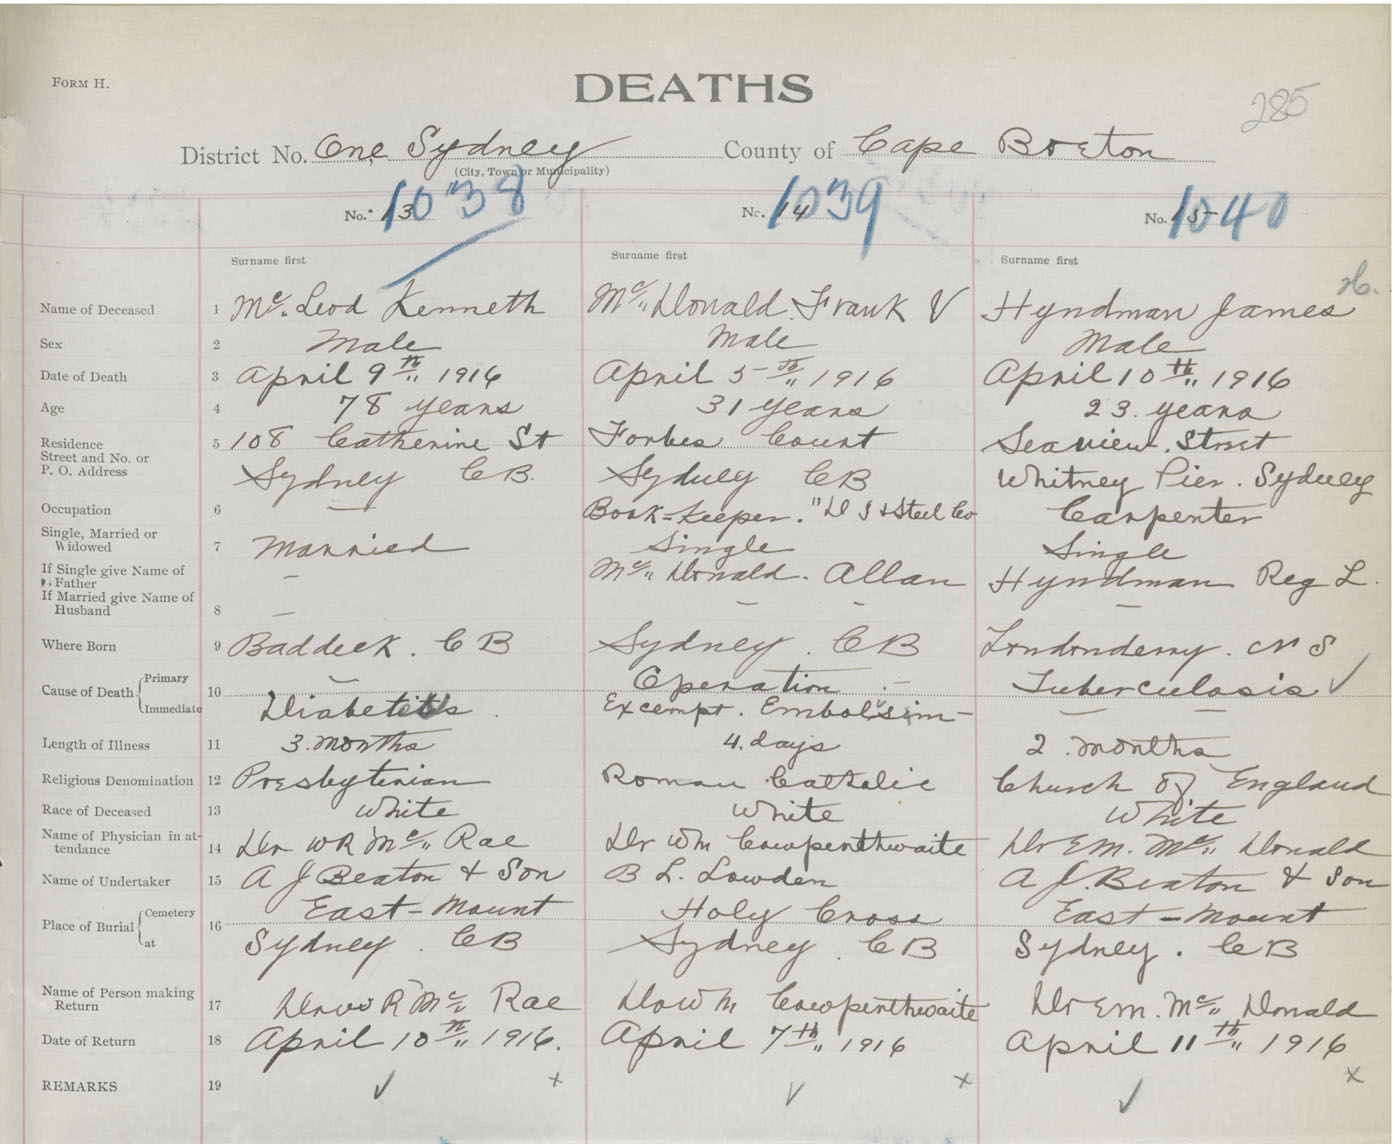 FORM H.
DEATHS
285
District No. One, Sydney County of Cape Breton
(City, Town or Municipality)
No. 13 1038 No. 14 1039 No. 15 1040
Surname first Surname first Surname first
Name of Deceased 1 Mc Leod Kenneth Mc Donald Frank V Hyndman James
Sex 2 Male Male Male
Date of Death 3 April 9th 1916 April 5th 1916 April 10th 1916
Age 4 78 years 31 years 23. years
Residence 5 108 Catherine St Forbes Court Seaview. Street
Street and No. or
P. O. Address Sydney CB. Sydney CB Whitney Pier. Sydney
Occupation 6 — Book-Keeper. "D I & Steel Co Carpenter
Single, Married or
Widowed 7 Married Single Single
If Single give Name of
Father – Mc Donald. Allan Hyndman Reg L.
If Married give Name of
Husband 8 – – – –
Where Born 9 Baddeck. CB Sydney. CB Londonderry. NS
Cause of Death Primary 10 – Operation – Tuberculosis ✓
Immediate Diabetes. Embolism – — —
Length of Illness 11 3 months 4. days 2. months
Religious Denomination 12 Presbyterian Roman Catholic Church of England
Race of Deceased 13 White White White
Name of Physician in at-
tendance 14 Dr WR Mc Rae Dr Wm Cowpenthwaite Dr EM. Mc Donald
Name of Undertaker 15 A J Beaton & Son B L. Lowden A J. Beaton & Son
Place of Burial Cemetery 16 East-Mount Holy Cross East-Mount
at Sydney. CB Sydney. CB Sydney. CB
Name of Person making
Return 17 Dr W R Mc Rae Dr Wm Cowpenthwaite Dr EM. Mc Donald
Date of Return 18 April 10th 1916. April 7th 1916 April 11th 1916
REMARKS 19 ✓ x ✓ x ✓ x